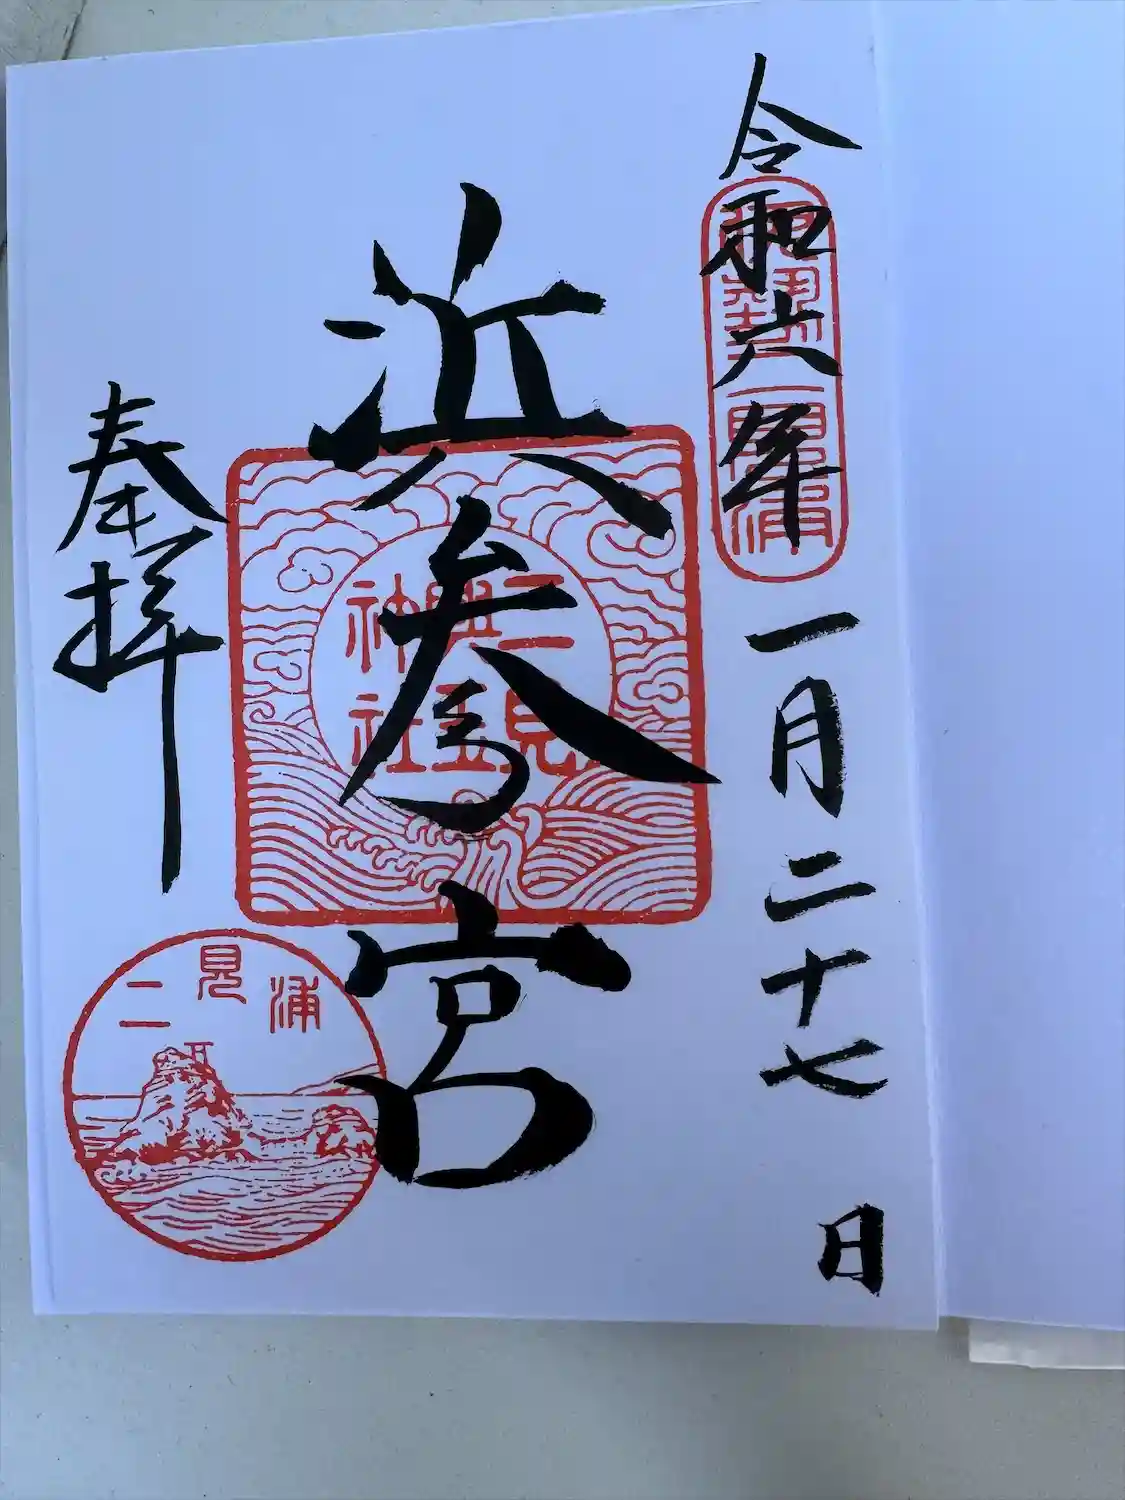 令和六年一月二十七日
伊勢二見浦
浜参宮
二見
興玉
神社
奉拝
二見浦